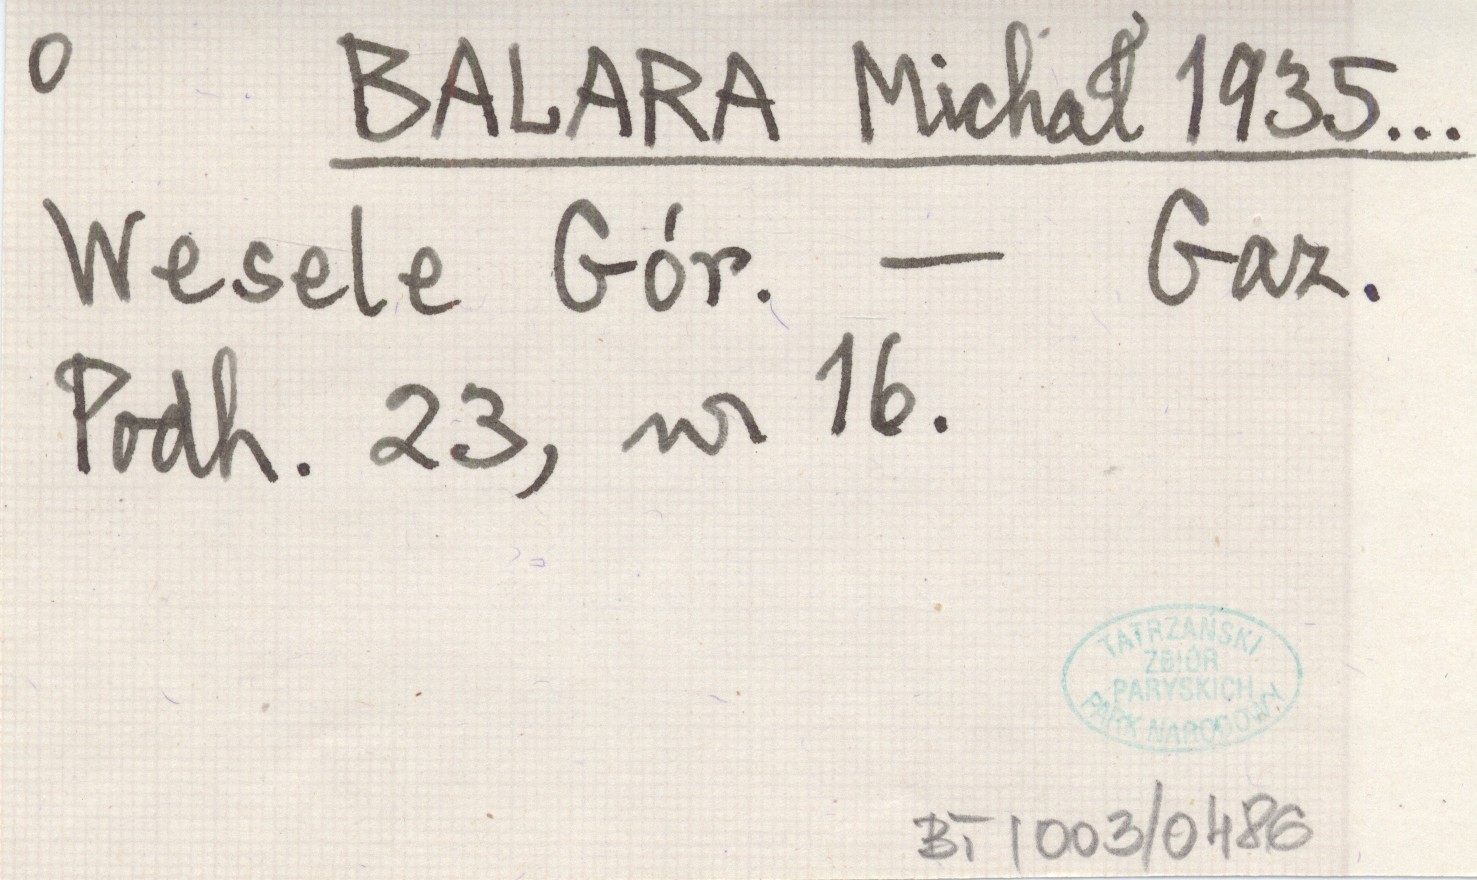 O BALARA Michał 1935...
Wesele Gór. — Gaz.
Podh. 23, nr 16.
TATRZAŃSKI
ZBIÓR
PARYSKICH
PARK NARODOWY
BT 1003/0486